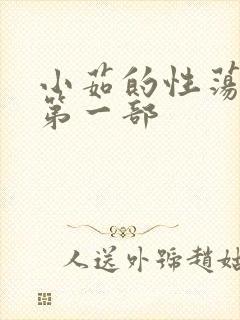 小茹的性蕩
第一部
人送外號趙姑